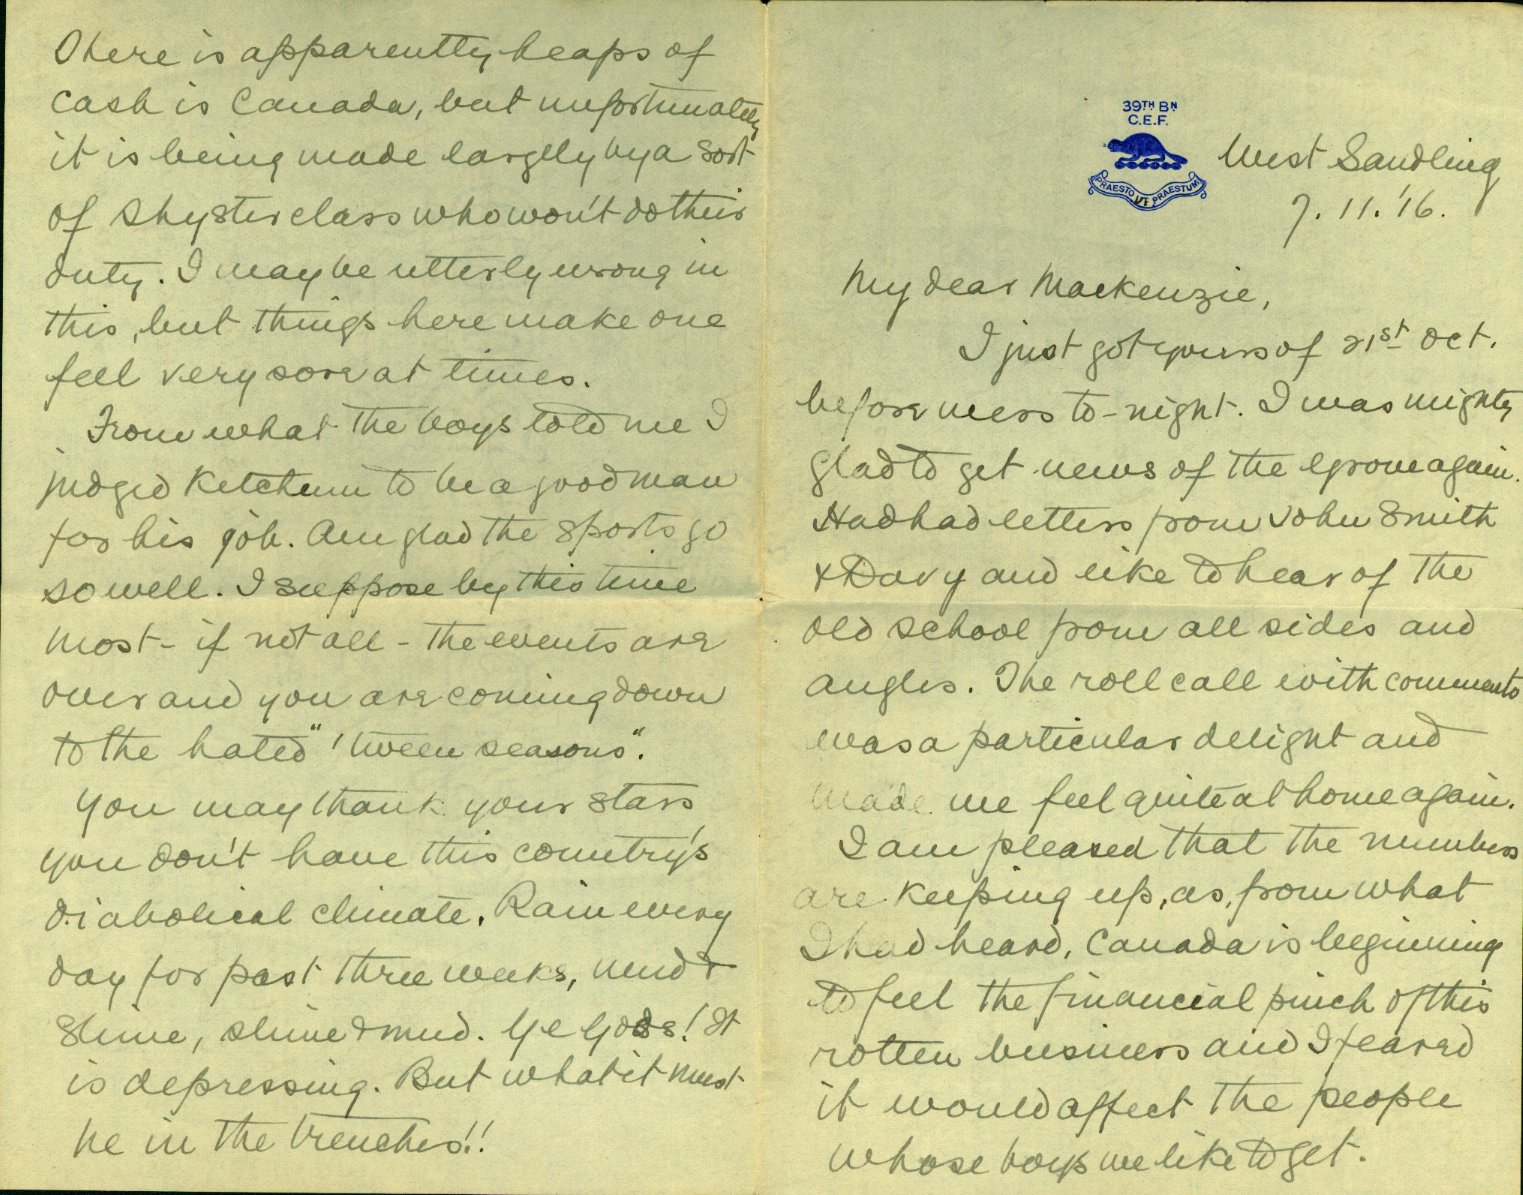 39TH BN
C.E.F.
PRAESTO UT PRAESTUM
West Sandling
7.11.'16.
My dear Mackenzie,
I just got yours of 21st Oct.
before mess to-night. I was mighty
glad to get news of the Grove again.
Had had letters from John Smith
& Davy and like to hear of the
old school from all sides and
angles. The roll call with comments
was a particular delight and
made me feel quite at home again.
I am pleased that the numbers
are keeping up, as, from what
I had heard, Canada is beginning
to feel the financial pinch of this
rotten business and I feared
it would affect the people
whose boys we like to get.
There is apparently heaps of
cash is Canada, but unfortunately
it is being made largely by a sort
of shyster class who won't do their
duty. I may be utterly wrong in
this, but things here make one
feel very sore at times.
From what the boys told me I
judged Ketchum to be a good man
for his job. Am glad the sports go
so well. I suppose by this time
most - if not all - the events are
over and you are coming down
to the hated "'tween seasons".
You may thank your stars
you don't have this country's
diabolical climate. Rain every
day for past three weeks, mud &
slime, slime & mud. Ye Gods! It
is depressing. But what it must
be in the trenches!!